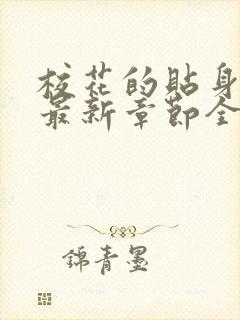 校花的貼身
最新章節全
錦青墨